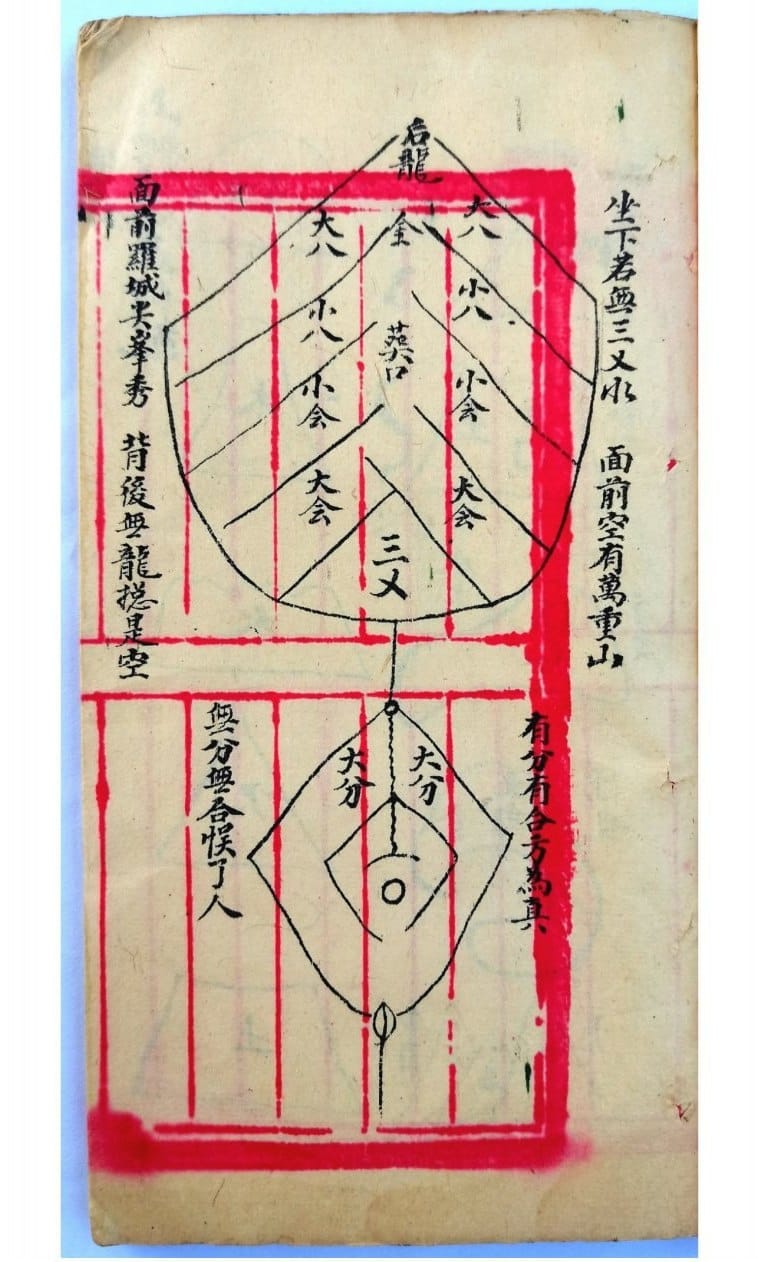 坐下若無三又水
面前空有萬重山
后龍
大八
金
大八
小八
小八
小会
小会
大会
大会
三又
面前羅城尖峯秀
背後無龍捴是空
有分有合方為真
大分
大分
無分無合悞了人